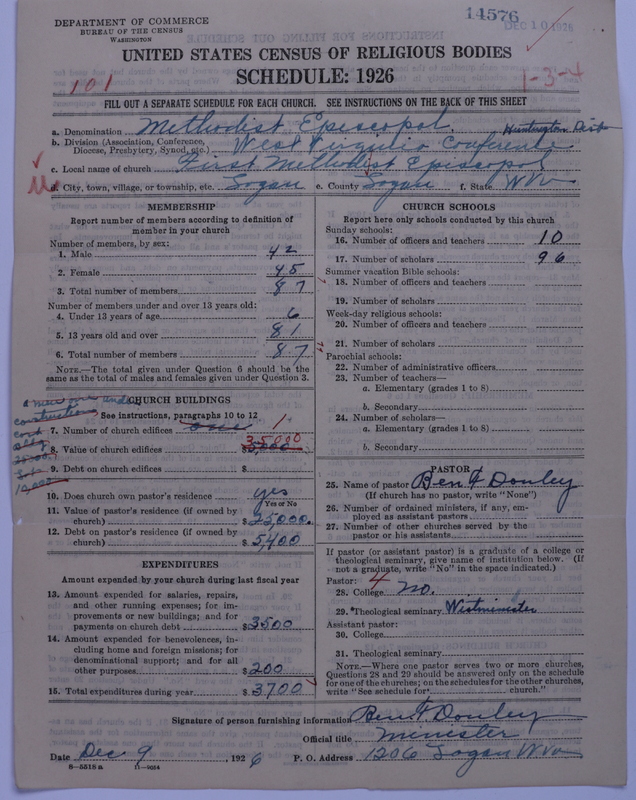 DEPARTMENT OF COMMERCE
BUREAU OF THE CENSUS
WASHINGTON
14576
DEC 10 1926
UNITED STATES CENSUS OF RELIGIOUS BODIES
SCHEDULE: 1926
101
1-3-4
FILL OUT A SEPARATE SCHEDULE FOR EACH CHURCH. SEE INSTRUCTIONS ON THE BACK OF THIS SHEET
a. Denomination Methodist Episcopal Huntington Dist
b. Division (Association, Conference, Diocese, Presbytery, Synod, etc.) West Virginia Conference
c. Local name of church First Methodist Episcopal
d. City, town, village, or township, etc. Logan e. County Logan f. State W Va
MEMBERSHIP
Report number of members according to definition of
member in your church
Number of members, by sex:
1. Male 42
2. Female 45
3. Total number of members 87
Number of members under and over 13 years old:
4. Under 13 years of age 6
5. 13 years old and over 81
6. Total number of members 87
NOTE.—The total given under Question 6 should be the
same as the total of males and females given under Question 3.
a new one under
construction
CHURCH BUILDINGS
See instructions, paragraphs 10 to 12
7. Number of church edifices one 1
8. Value of church edifices $ 35,000
9. Debt on church edifices $
10. Does church own pastor's residence yes
Yes or No
11. Value of pastor's residence (if owned by
church) $25,000.
12. Debt on pastor's residence (if owned by
church) $5,400
EXPENDITURES
Amount expended by your church during last fiscal year
13. Amount expended for salaries, repairs,
and other running expenses; for im-
provements or new buildings; and for
payments on church debt $3500
14. Amount expended for benevolences, in-
cluding home and foreign missions; for
denominational support; and for all
other purposes $200
15. Total expenditures during year $3700
CHURCH SCHOOLS
Report here only schools conducted by this church
Sunday schools:
16. Number of officers and teachers 10
17. Number of scholars 96
Summer vacation Bible schools:
18. Number of officers and teachers
19. Number of scholars
Week-day religious schools:
20. Number of officers and teachers
21. Number of scholars
Parochial schools:
22. Number of administrative officers
23. Number of teachers—
a. Elementary (grades 1 to 8)
b. Secondary
24. Number of scholars—
a. Elementary (grades 1 to 8)
b. Secondary
PASTOR
25. Name of pastor Ben F Donley
(If church has no pastor, write "None")
26. Number of ordained ministers, if any, em-
ployed as assistant pastors
27. Number of other churches served by the
pastor or his assistants
If pastor (or assistant pastor) is a graduate of a college or
theological seminary, give name of institution below. (If
not a graduate, write "No" in the space indicated.)
Pastor: 4
28. College no.
29. Theological seminary Westminister
Assistant pastor:
30. College
31. Theological seminary
NOTE.—Where one pastor serves two or more churches,
Questions 28 and 29 should be answered only on the schedule
for one of the churches; on the schedules for the other churches,
write "See schedule for church."
Signature of person furnishing information Ben F Donley
Official title Minister
Date Dec 9, 1926 P. O. Address 1206 Logan W Va
8—5518 a 11—9024